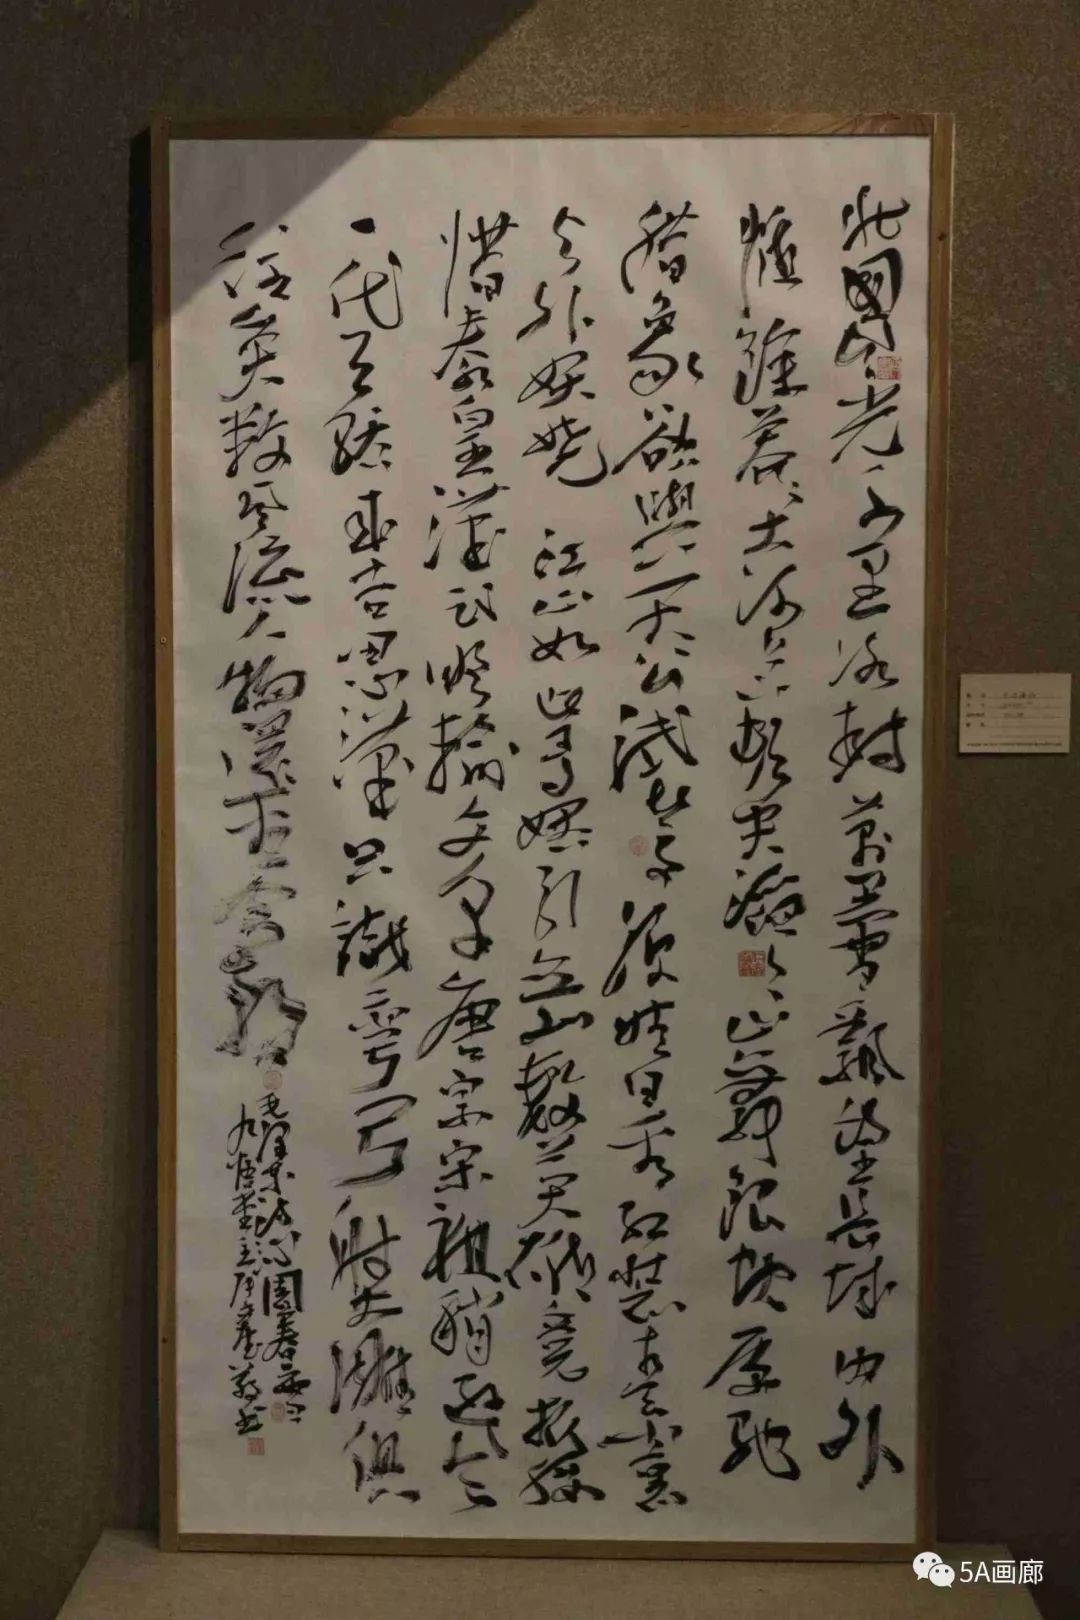 北国风光千里冰封万里雪飘望长城内外
惟余莽莽大河上下顿失滔滔山舞银蛇原驰
腊象欲与天公试比高须晴日看红装素裹
分外妖娆 江山如此多娇引无数英雄竞折腰
惜秦皇汉武略输文采唐宗宋祖稍逊风骚
一代天骄成吉思汗只识弯弓射大雕俱
往矣数风流人物还看今朝
毛泽东沁园春雪
5A画廊